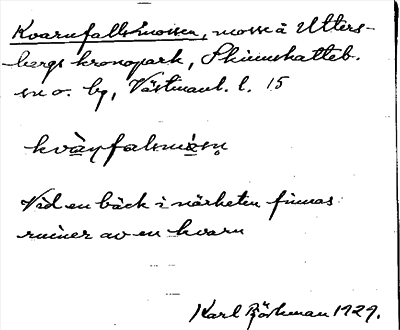 Kvarnfallsmossen, mosse å Utters-
bergs kronopark, Skinnskatteb.
sn o. by, Västmanl. l. 15
kvà̀ṇfalsmòsṇ
Vid en bäck i närheten finnas
ruiner av en kvarn
Karl Björkman 1929.